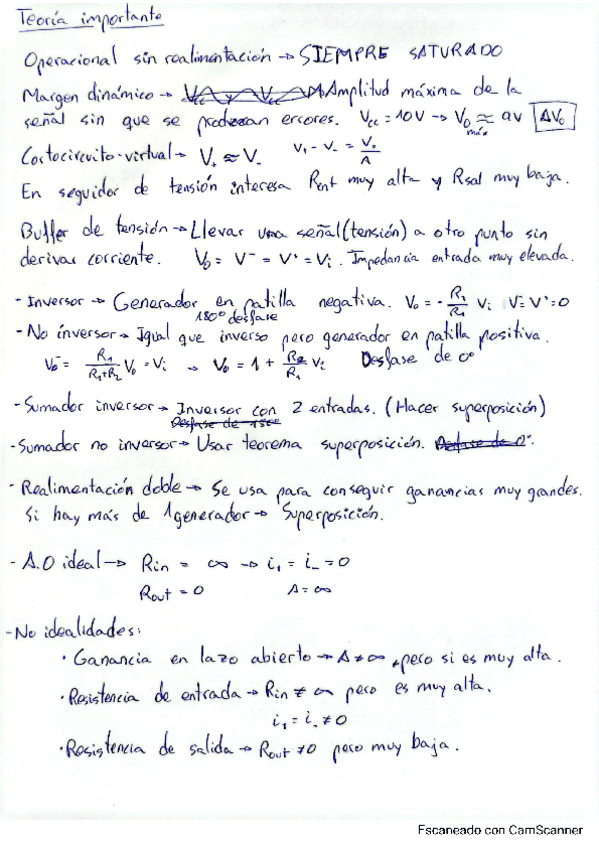 Teoría importante
Operacional sin realimentación → SIEMPRE SATURADO
Margen dinámico → Amplitud máxima de la
señal sin que se produzcan errores. Vcc = 10V → Vo máx ≈ 9V ΔVo
Cortocircuito virtual → V+ ≈ V- V+ - V- = Vo/A
En seguidor de tensión interesa Rent muy alta y Rsal muy baja.
Buffer de tensión → Llevar una señal (tensión) a otro punto sin
derivar corriente. Vo = V- = V+ = Vi. Impedancia entrada muy elevada.
- Inversor → Generador en patilla negativa. Vo = - R2/R1 Vi V- = V+ = 0
180º desfase
- No inversor → Igual que inverso pero generador en patilla positiva.
Vo- = R1/(R1+R2) Vo = Vi → Vo = 1 + R2/R1 Vi Desfase de 0º
- Sumador inversor → Inversor con 2 entradas. (Hacer superposición)
- Sumador no inversor → Usar teorema superposición.
- Realimentación doble → Se usa para conseguir ganancias muy grandes.
Si hay más de 1 generador → Superposición.
- A.O ideal → Rin = ∞ → i+ = i- = 0
Rout = 0 A = ∞
- No idealidades:
· Ganancia en lazo abierto → A ≠ ∞, pero si es muy alta.
· Resistencia de entrada → Rin ≠ ∞ pero es muy alta.
i+ = i- ≠ 0
· Resistencia de salida → Rout ≠ 0 pero muy baja.
Escaneado con CamScanner